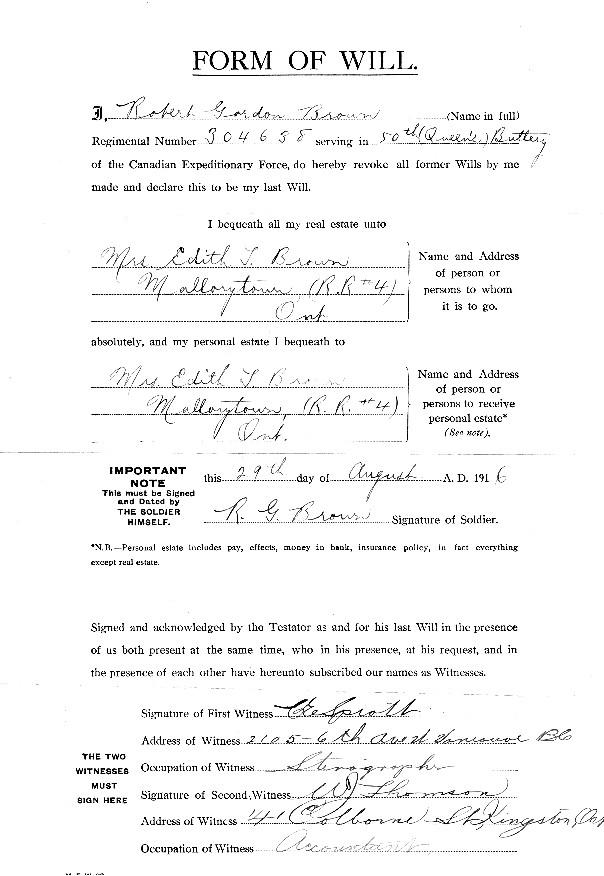 FORM OF WILL.
I, Robert Gordon Brown (Name in full)
Regimental Number 304638 serving in 50th (Queen's) Battery
of the Canadian Expeditionary Force, do hereby revoke all former Wills by me
made and declare this to be my last Will.
I bequeath all my real estate unto
Mrs Edith T. Brown
Mallorytown, (R.R #4)
Ont.
Name and Address
of person or
persons to whom
it is to go.
absolutely, and my personal estate I bequeath to
Mrs. Edith T. Brown
Mallorytown, (R. R. #4)
Ont.
Name and Address
of person or
persons to receive
personal estate*
(See note).
IMPORTANT
NOTE
This must be Signed
and Dated by
THE SOLDIER
HIMSELF.
this 29th day of August A. D. 1916
R. G. Brown Signature of Soldier.
*N.B.—Personal estate includes pay, effects, money in bank, insurance policy, in fact everything
except real estate.
Signed and acknowledged by the Testator as and for his last Will in the presence
of us both present at the same time, who in his presence, at his request, and in
the presence of each other have hereunto subscribed our names as Witnesses.
THE TWO
WITNESSES
MUST
SIGN HERE
Signature of First Witness Sprott
Address of Witness 2105-6th Ave
Occupation of Witness Stenographer
Signature of Second Witness W Thomson
Address of Witness 41 Colborne St Kingston Ont
Occupation of Witness Accountant